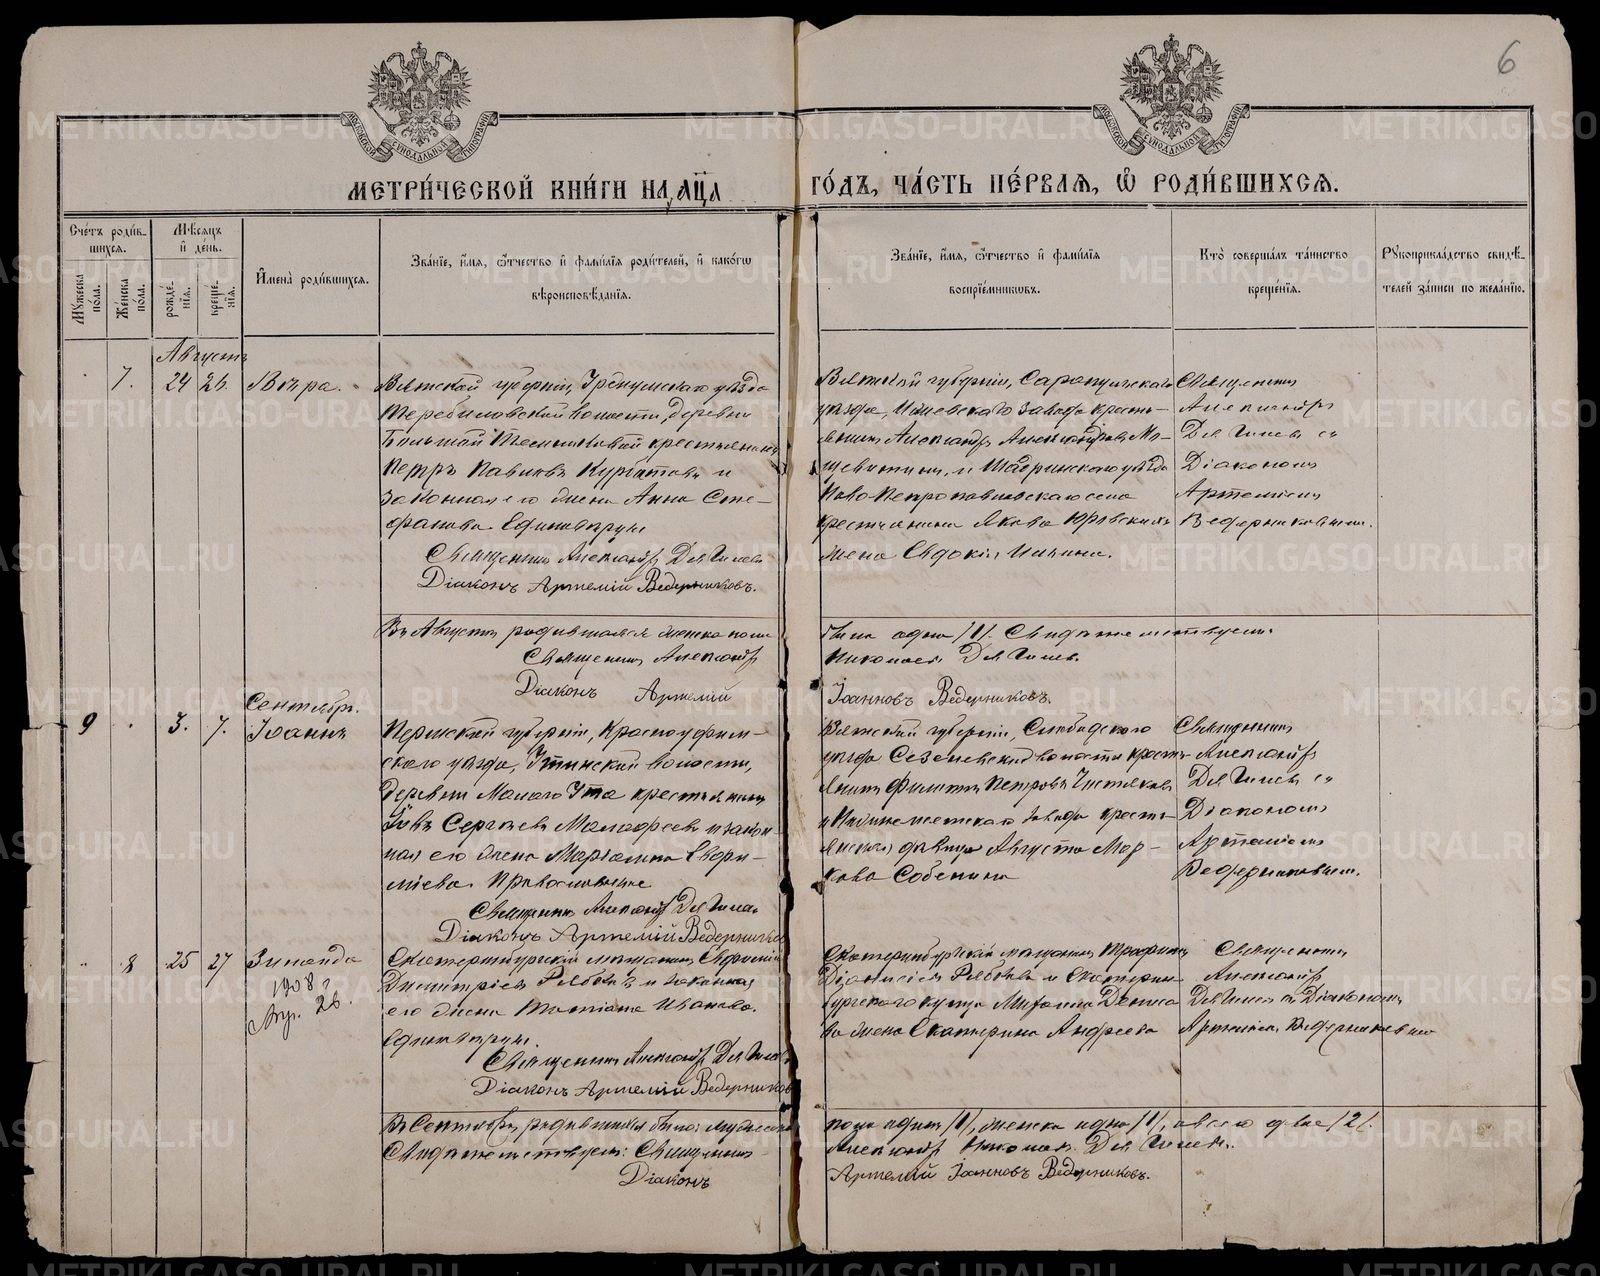 6
МОСКОВСКОЙ СѴНОДАЛЬНОЙ ТИПОГРАФІИ
МОСКОВСКОЙ СѴНОДАЛЬНОЙ ТИПОГРАФІИ
МЕТРИ́ЧЕСКОЙ КНИ́ГИ НА ҂АЦА ГО́ДЪ, ЧА́СТЬ ПЕ́РВАЯ, Ѽ РОДИ́ВШИХСЯ.
Сче́тъ роди́в-
шихся.
Му́жеска
по́ла.
Же́нска
по́ла.
Мѣ́сяцъ
и҆ де́нь.
рожде́-
нїя.
креще́-
нїя.
И҆мена̀ роди́вшихся.
Зва́нїе, и҆́мя, ѻ҆́тчество и҆ фами́лїя роди́телей, и҆ како́гѡ
вѣроисповѣ́данїя.
Зва́нїе, и҆́мя, ѻ҆́тчество и҆ фами́лїя
воспрїе́мниковъ.
Кто̀ соверша́лъ та́инство
креще́нїя.
Рꙋкоприкла́дство свидѣ́-
телей за́писи по жела́нїю.
Августъ
7. 24 26. Вѣра.
Вятской губерніи, Уржумскаго уѣзда
волости, деревни
Большой крестьянинъ
Петръ Павловъ и
законная его жена Анна Сте-
фанова. Единовѣрцы
Священникъ Александръ
Діаконъ Артемій Ведерниковъ.
Вятской губерніи, Сарапульскаго
уѣзда, Ижевскаго завода кресть-
янинъ Александръ Александровъ
и Шадринскаго уѣзда
Ново-Петропавловскаго села
крестьянина Якова Юровскихъ
жена Евдокія Ильина.
Священникъ
Александръ
съ
Діакономъ
Артеміемъ
Ведерниковымъ.
Въ Августѣ родившаяся женска пола
была одна /1/. Свидѣтельствуемъ:
Священникъ Александръ
Николаевъ
Діаконъ Артемій
Іоанновъ Ведерниковъ.
Сентябрь.
9 3. 7. Іоаннъ
Пермской губерніи, Красноуфим-
скаго уѣзда, Утинской волости,
деревни Малаго Ута крестьянинъ
Іовъ Сергѣевъ и закон-
ная его жена Маріамна Евфи-
міева. Православные
Священникъ Александръ
Діаконъ Артемій Ведерниковъ
Вятской губерніи, Слободскаго
уѣзда волости кресть-
янинъ Филиппъ Петровъ Чистяковъ
и завода кресть-
янская дѣвица Августа Мар-
кова Собенина
Священникъ
Александръ
съ
Діакономъ
Артеміемъ
Ведерниковымъ.
8 25 27 Зинаида
1908 г.
Апр. 26.
Екатеринбургскій мѣщанинъ Евфимій
Димитріевъ Рябовъ и законная
его жена Татіана Иванова.
Единовѣрцы.
Священникъ Александръ
Діаконъ Артемій Ведерниковъ
Екатеринбургскій мѣщанинъ Трофимъ
Діонисіевъ Рябовъ и Екатерин-
бургскаго купца Михаила
жена Екатерина Андреева
Священникъ
Александръ
съ Діакономъ
Артеміемъ Ведерниковымъ
Въ Сентябрѣ родившихся было: мужеска
пола одинъ /1/, женска одна /1/, а всего двое /2/.
Свидѣтельствуемъ: Священникъ
Александръ Николаевъ
Діаконъ
Артемій Іоанновъ Ведерниковъ.
METRIKI.GASO-URAL.RU